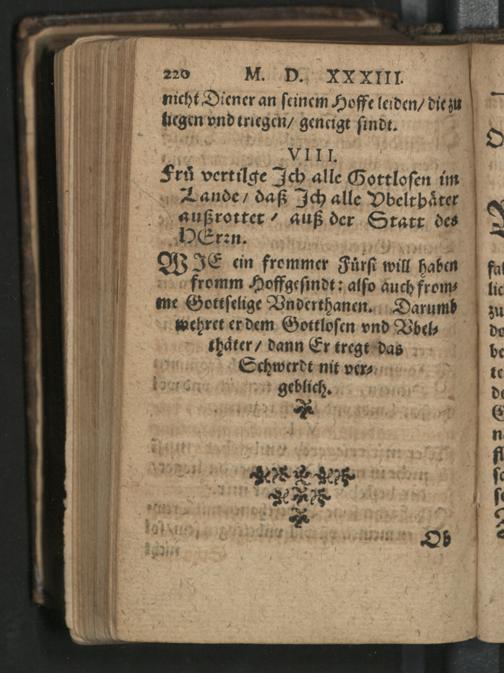 220 M. D. XXXIII.
nicht Diener an seinem Hoffe leiden/ die zu
liegen vnd triegen/ geneigt sindt.
VIII.
Frü vertilge Jch alle Gottlosen im
Lande/ daß Jch alle Vbelthäter
außrottet/ auß der Statt des
HErrn.
WJE ein frommer Fürst will haben
fromm Hoffgesindt: also auch from-
me Gottselige Vnderthanen. Darumb
wehret er dem Gottlosen vnd Vbel-
thäter/ dann Er tregt das
Schwerdt nit ver-
geblich.
Ob